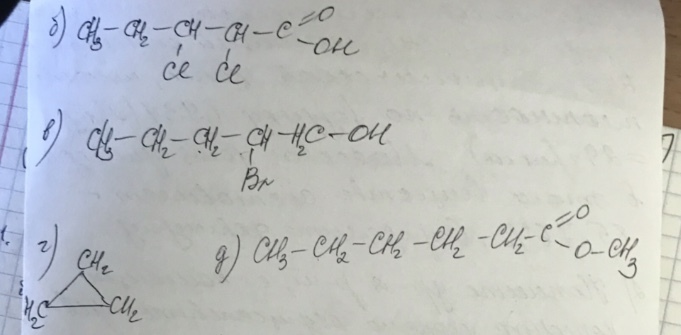 б) CH₃–CH₂–CH–CH–C=O
–OH
Cl Cl
в) CH₃–CH₂–CH₂–CH–H₂C–OH
Br
г) CH₂
H₂C CH₂
д) CH₃–CH₂–CH₂–CH₂–CH₂–C=O
O–CH₃